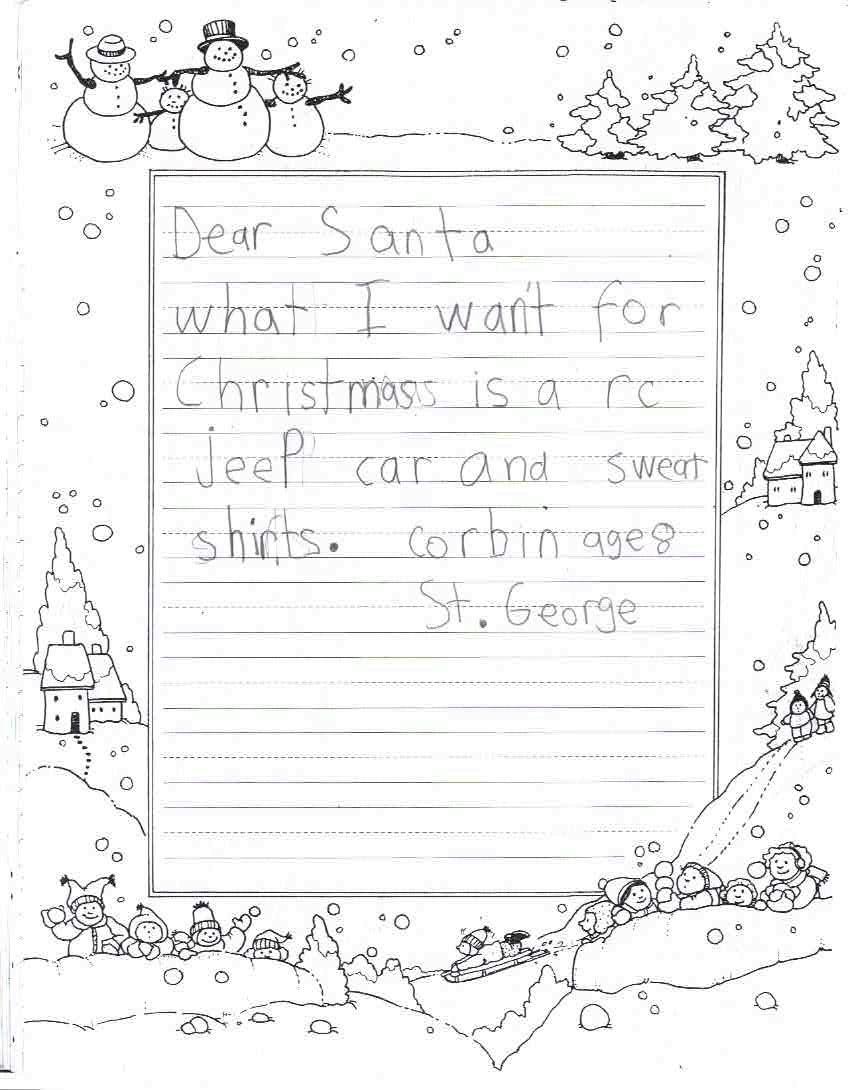 Dear Santa
what I wan't for
Christmass is a rc
jeep car and sweat
shirts. corbin age 8
St. George